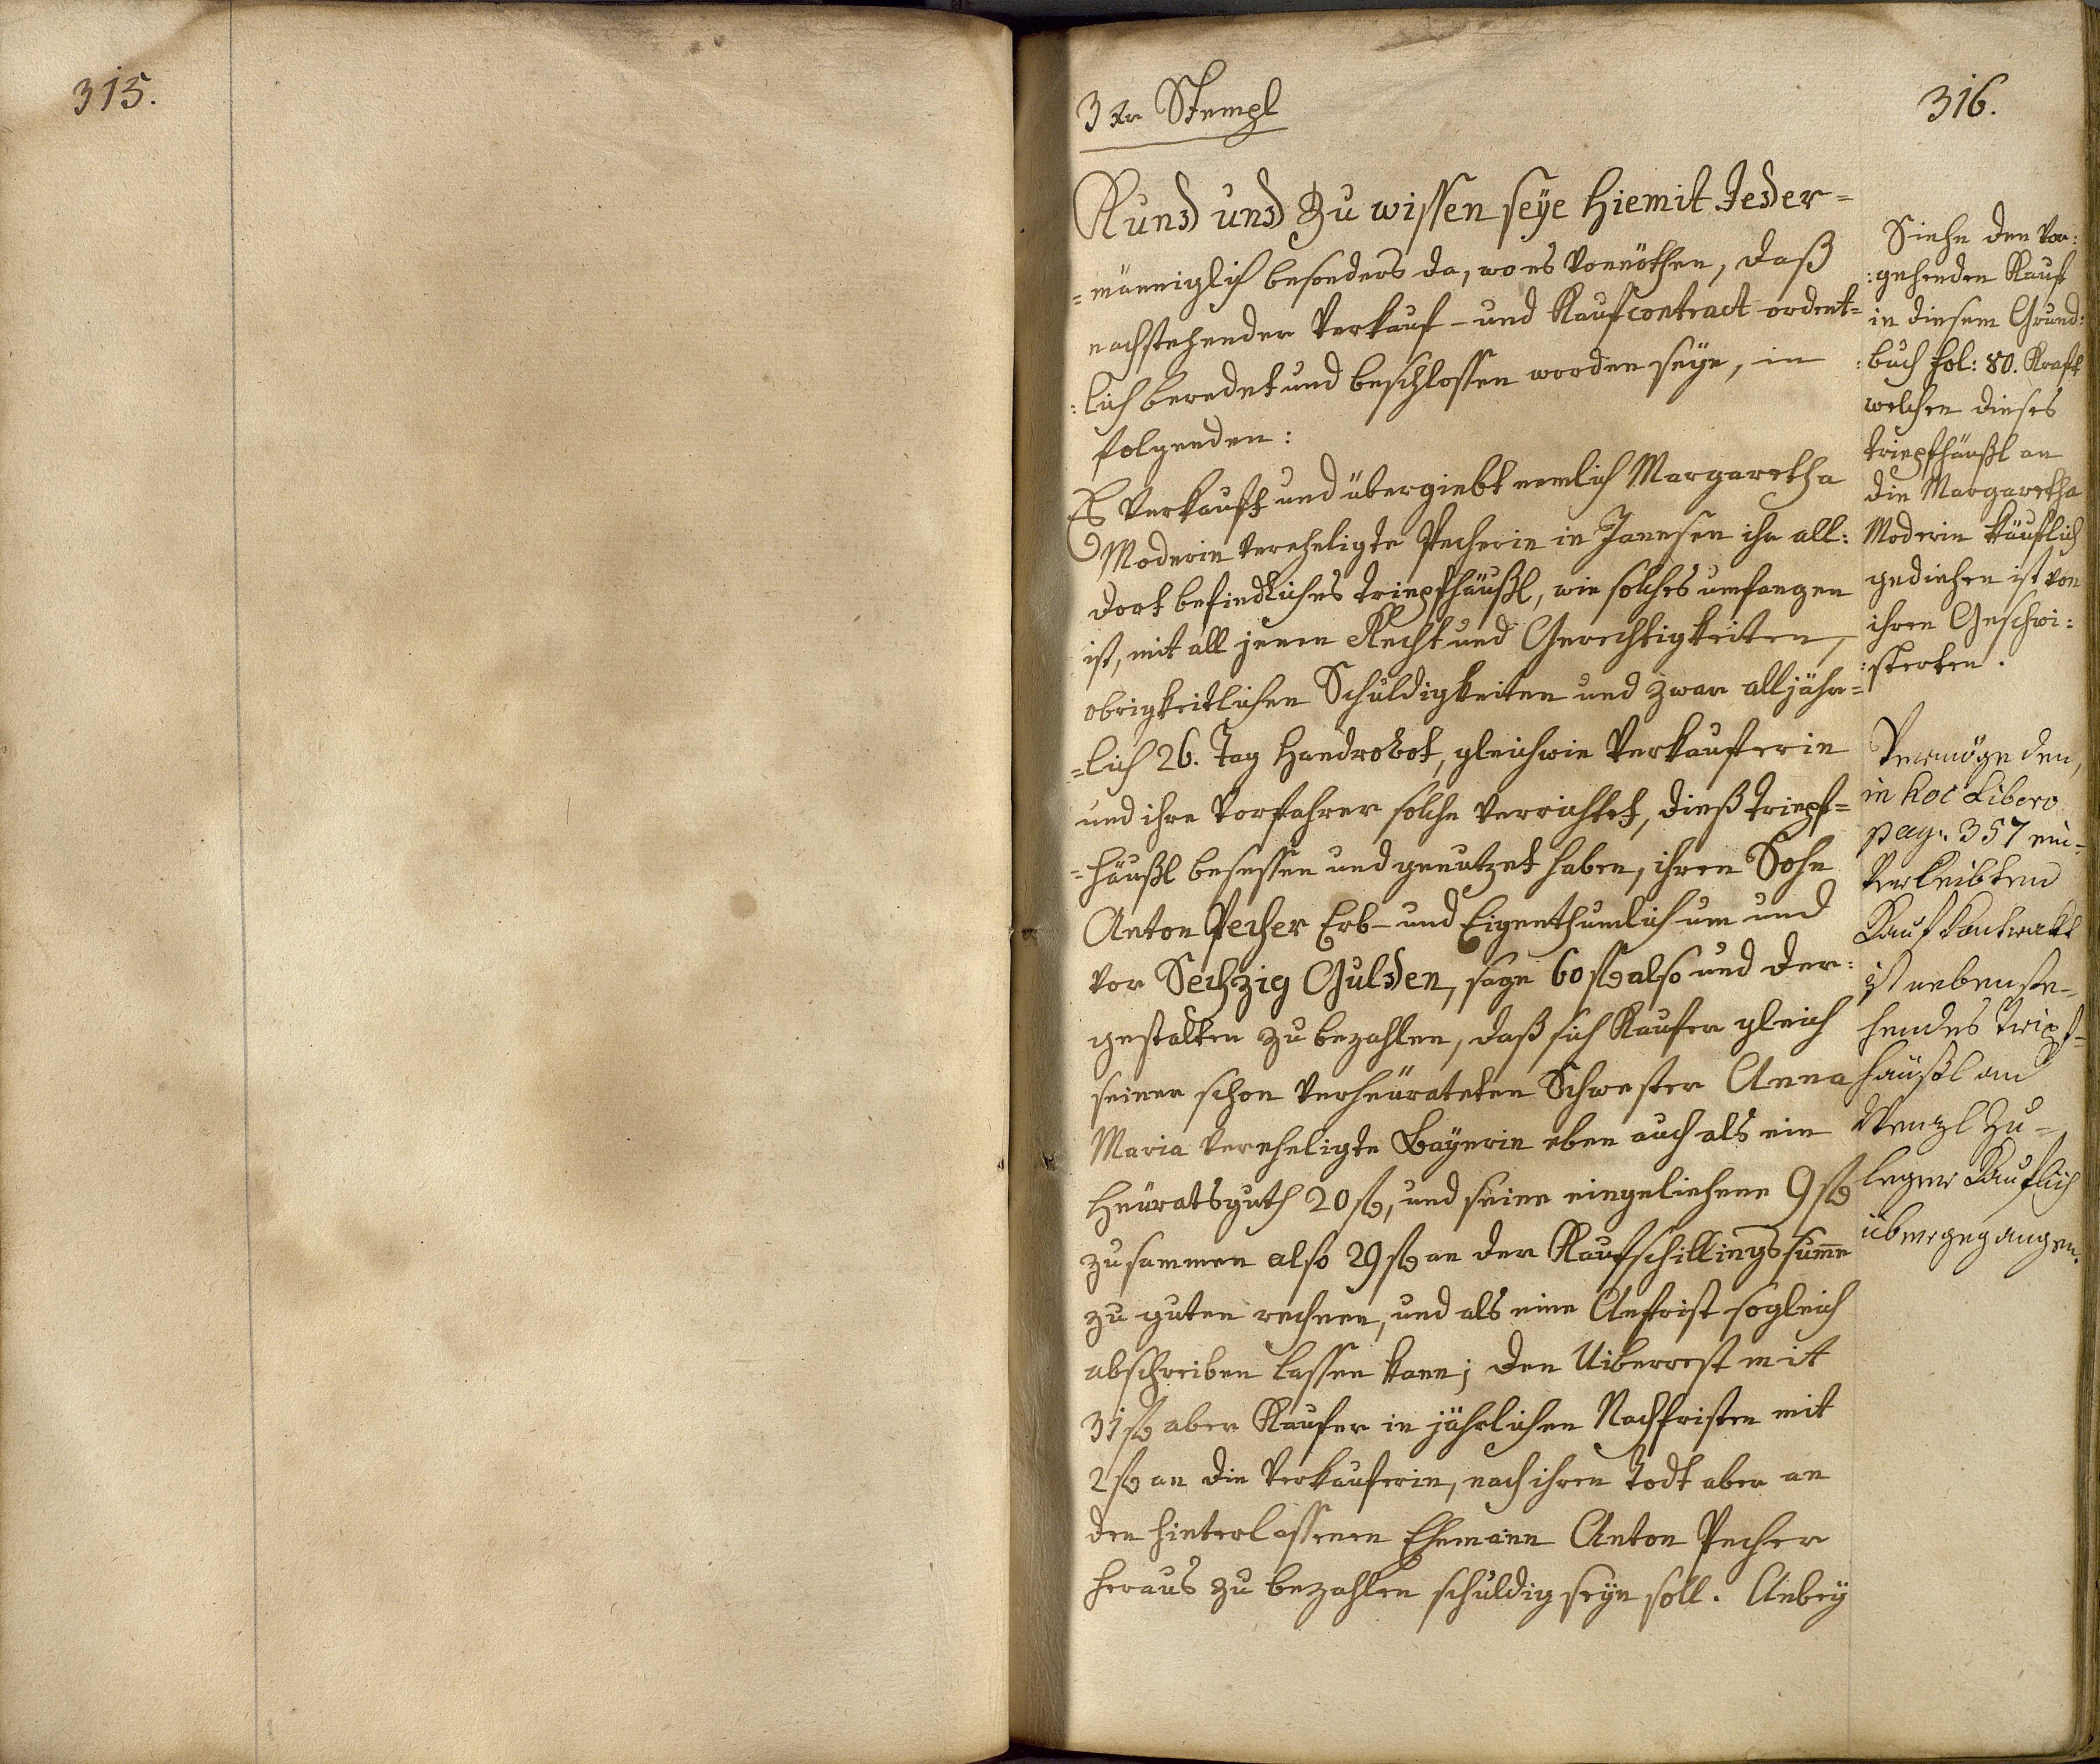 315.
3 Kr Stempl
316.
Kund und Zu wissen seÿe hiemit Jeder=
=männiglich besonders da, wo es vonnöthen, daß
nachstehender Verkauf- und Kaufcontract ordent=
:lich beredet und beschlossen worden seÿe, in
folgenden:
Es verkauft und übergiebt nemlich Margaretha
Moderin verehligte Pecherin in Janesen ihr all:
dort befindliches Tripfhäußl, wie solches umfangen
ist, mit all jenen Recht und Gerechtigkeiten,
obrigkeitlichen Schuldigkeiten und zwar alljähr=
=lich 26. Tag Handrobot, gleichwie Verkäufferin
und ihre Vorfahrer solche verrichtet, dieß Tripf=
=häußl besessen und genutzet haben, ihren Sohn
Anton Pecher Erb- und Eigenthumlich um und
vor Sechzig Gulden, sage 60 fl also und der:
gestalten zu bezahlen, daß sich Kaufer gleich
seiner schon verheürateten Schwester Anna
Maria verehligte Baÿerin eben auch als ein
Heüratsguth 20 fl, und seine eingeliehene 9 fl
zusammen also 29 fl an der Kaufschillingssume
zu guten rechnen, und als eine Anfrist sogleich
abschreiben lassen kann; den Uiberrest mit
31 fl aber Kaufer in jährlichen Nachfristen mit
2 fl an die Verkäuferin, nach ihren Todt aber an
den hinterlassenen Ehemann Anton Pecher
heraus zu bezahlen schuldig seÿn soll. Anbeÿ
Siehe den vor:
:gehenden Kauf
in diesem Grund:
:buch fol: 80. Kraft
welchen dieses
Tripfhäußl an
die Margaretha
Moderin käuflich
gediehen ist von
ihren Geschwi:
:sterten.
Vermöge den,
in hoc Libero
pag. 357 ein=
verleibten
Kaufkontrakt
ist nebenste=
hendes Tripf=
häußl an
Wenzl Zu=
legner Kauflich
übergegangen.